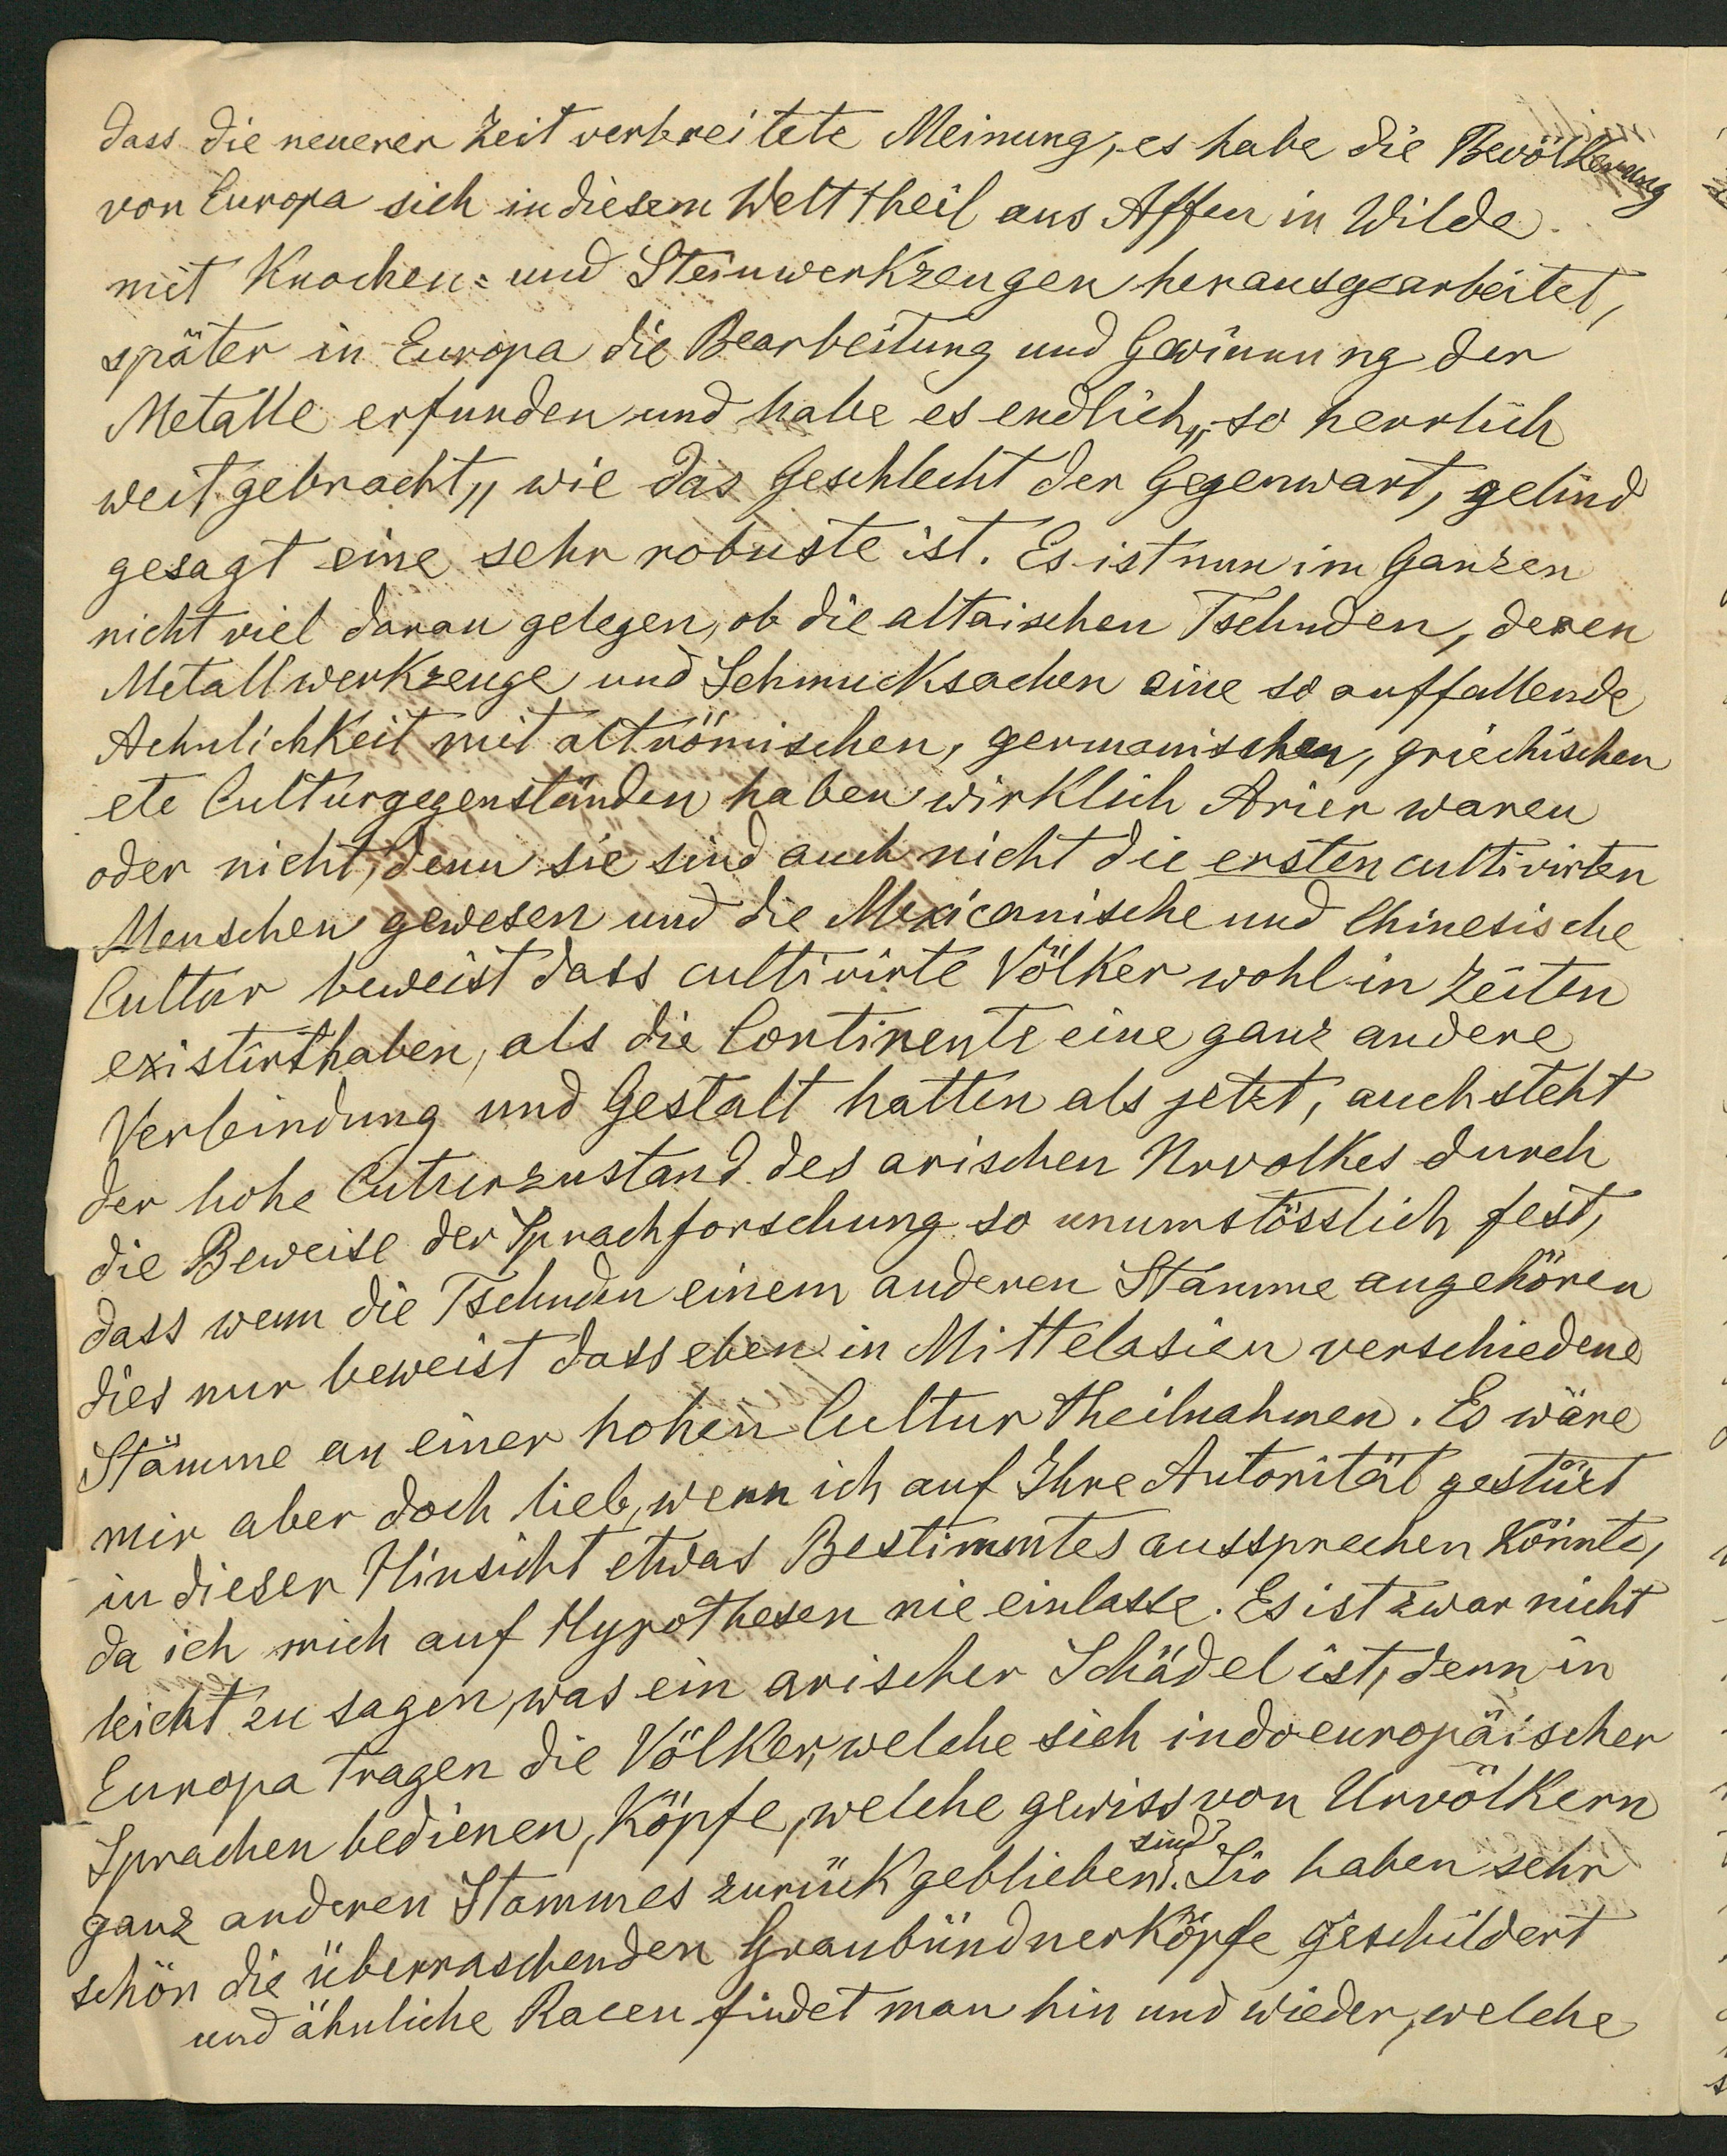 dass die neuerer Zeit verbreitete Meinung, es habe die Bevölkerung
von Europa sich in diesem Welttheil aus Affen in Wilde
mit Knochen= und Steinwerkzeugen herausgearbeitet,
später in Europa die Bearbeitung und Gewinnung der
Metalle erfunden und habe es endlich „so herrlich
weit gebracht„ wie das Geschlecht der Gegenwart, gelind
gesagt eine sehr robuste ist. Es ist nun im Ganzen
nicht viel daran gelegen, ob die altaischen Tschuden, deren
Metallwerkzeuge und Schmucksachen eine so auffallende
Aehnlichkeit mit altrömischen, germanischen, griechischen
etc Culturgegenständen haben wirklich Arier waren
oder nicht, denn sie sind auch nicht die ersten cultivirten
Menschen gewesen und die Mexicanische und Chinesische
Cultur beweist dass cultivirte Völker wohl in Zeiten
existirt haben, als die Continente eine ganz andere
Verbindung und Gestalt hatten als jetzt, auch steht
der hohe Cuturzustand des arischen Urvolkes durch
die Beweise der Sprachforschung so unumstösslich fest,
dass wenn die Tschuden einem anderen Stamme angehören
dies nur beweist dass eben in Mittelasien verschiedene
Stämme an einer hohen Cultur theilnahmen. Es wäre
mir aber doch lieb, wenn ich auf Ihre Autorität gestüzt
in dieser Hinsicht etwas Bestimmtes aussprechen könnte,
da ich mich auf Hypothesen nie einlasse. Es ist zwar nicht
leicht zu sagen, was ein arischer Schädel ist, denn in
Europa tragen die Völker, welche sich indoeuropäischer
Sprachen bedienen, Köpfe, welche gewiss von Urvölkern
ganz anderen Stammes zurückgeblieben sind. Sie haben sehr
schön die überraschenden Graubündnerköpfe geschildert
und ähnliche Racen findet man hin und wieder, welche